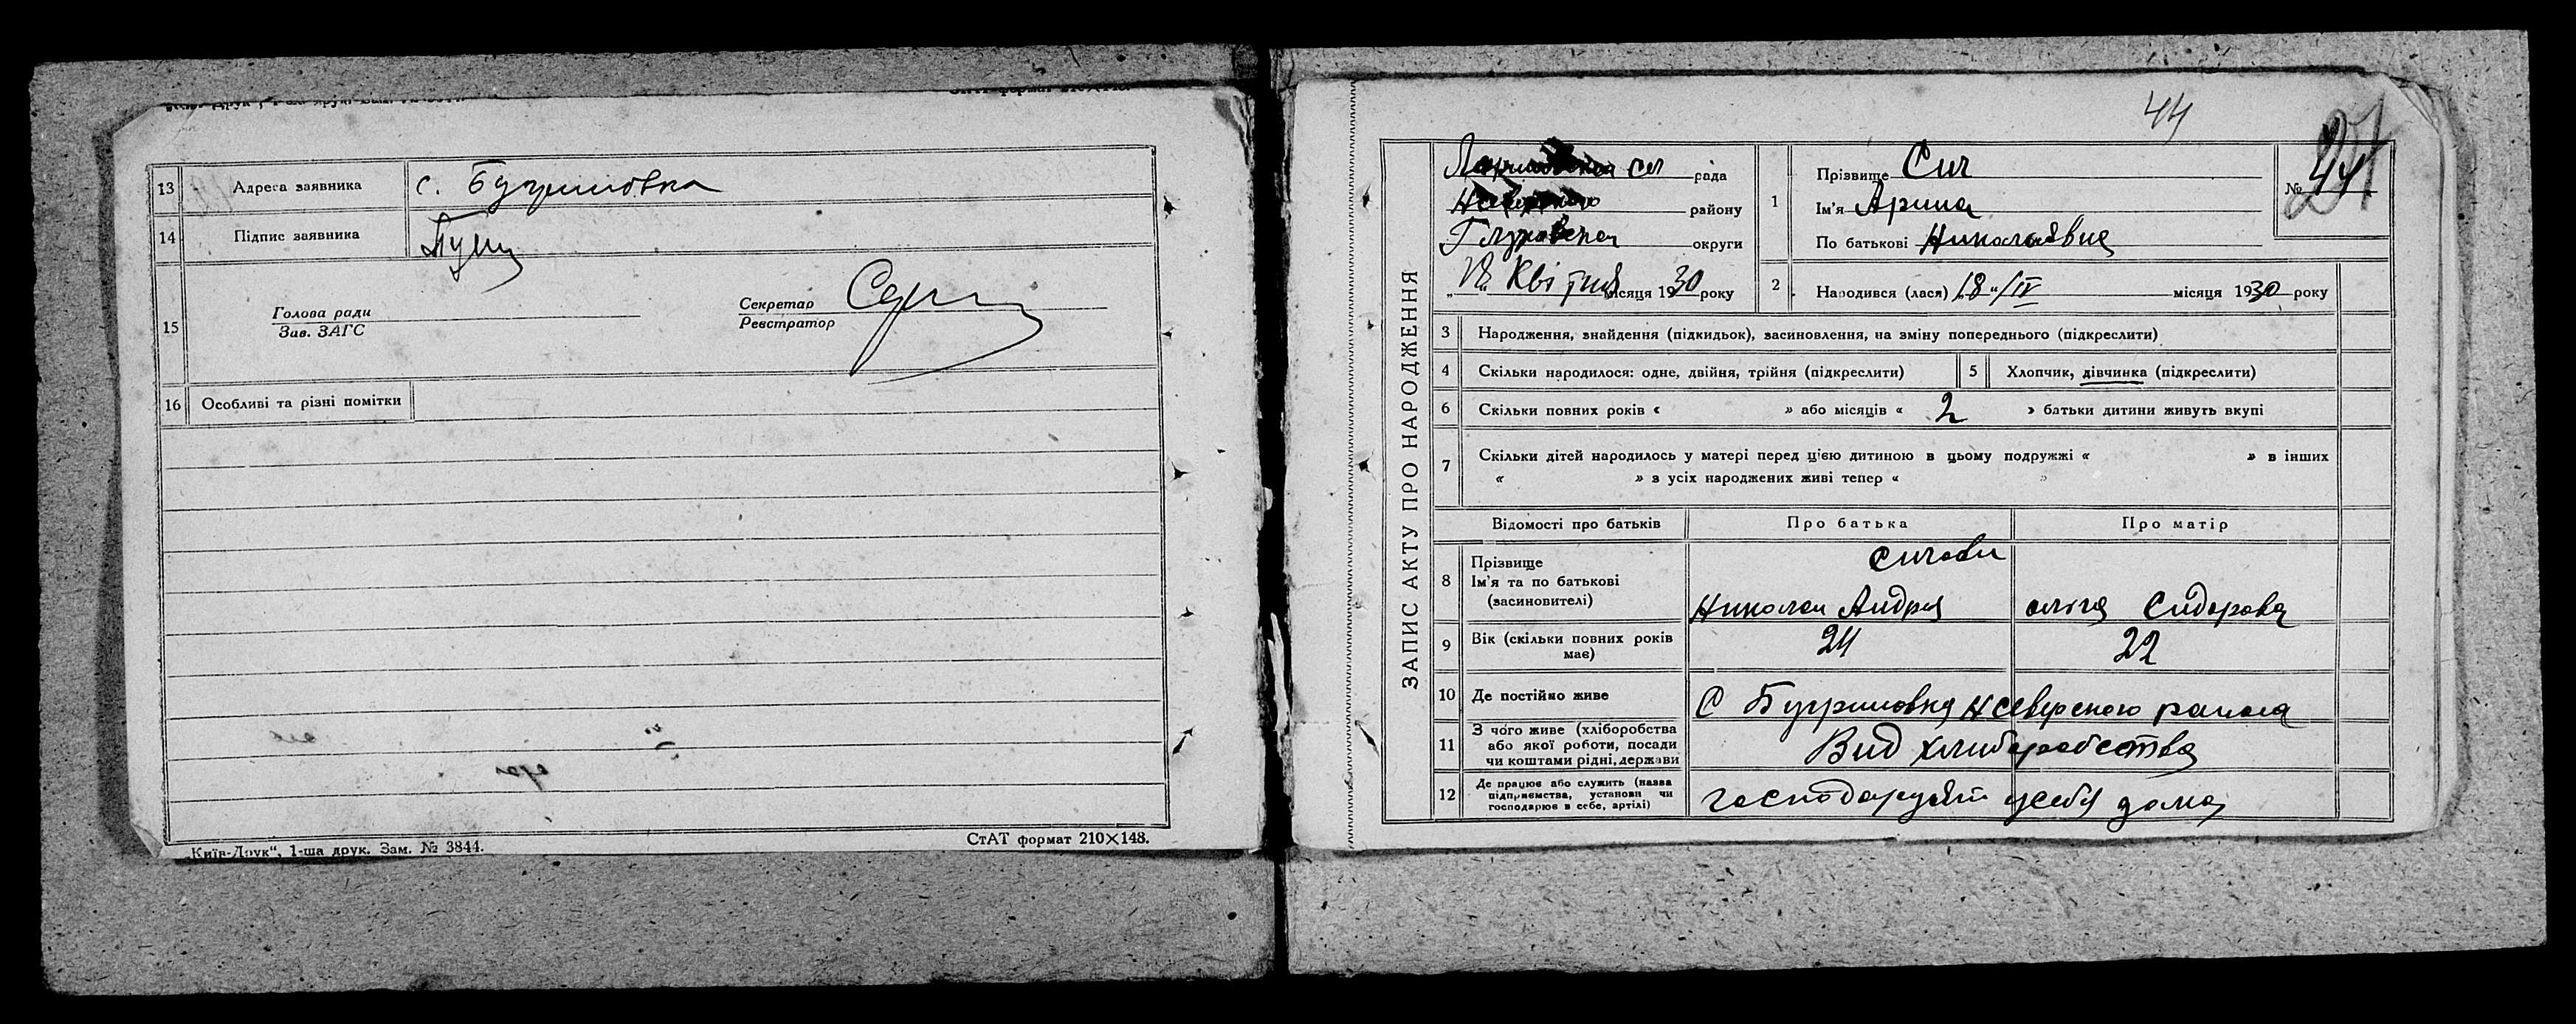 13 Адреса заявника с. Бугриновка
14 Підпис заявника
15 Голова ради
Зав. ЗАГС
Секретар
Реєстратор
16 Особливі та різні помітки
„Київ-Друк“, 1-ша друк. Зам. № 3844.
СтАТ формат 210×148.
44
ЗАПИС АКТУ ПРО НАРОДЖЕННЯ
рада
району
Глуховська округи
Квітня місяця 1930 року
1 Прізвище Сич
Ім'я Арина
По батькові Николаевна
№ 44
2 Народився (лася) „18“/IV місяця 1930 року
3 Народження, знайдення (підкидьок), засиновлення, на зміну попереднього (підкреслити)
4 Скільки народилося: одне, двійня, трійня (підкреслити)
5 Хлопчик, дівчинка (підкреслити)
6 Скільки повних років « » або місяців « 2 » батьки дитини живуть вкупі
7 Скільки дітей народилось у матері перед цією дитиною в цьому подружжі « » в інших
« » з усіх народжених живі тепер « »
Відомості про батьків Про батька Про матір
8 Прізвище
Ім'я та по батькові
(засиновителі)
Сичови
Николай Андрея Сидорова
9 Вік (скільки повних років має) 24 22
10 Де постійно живе С Бугриновка Н Северского района
11 З чого живе (хліборобства
або якої роботи, посади
чи коштами рідні, держави
Вид хлиборобства
12 Де працює або служить (назва
підприємства, установи чи
господарює в себе, артілі)
господарует усебя дома